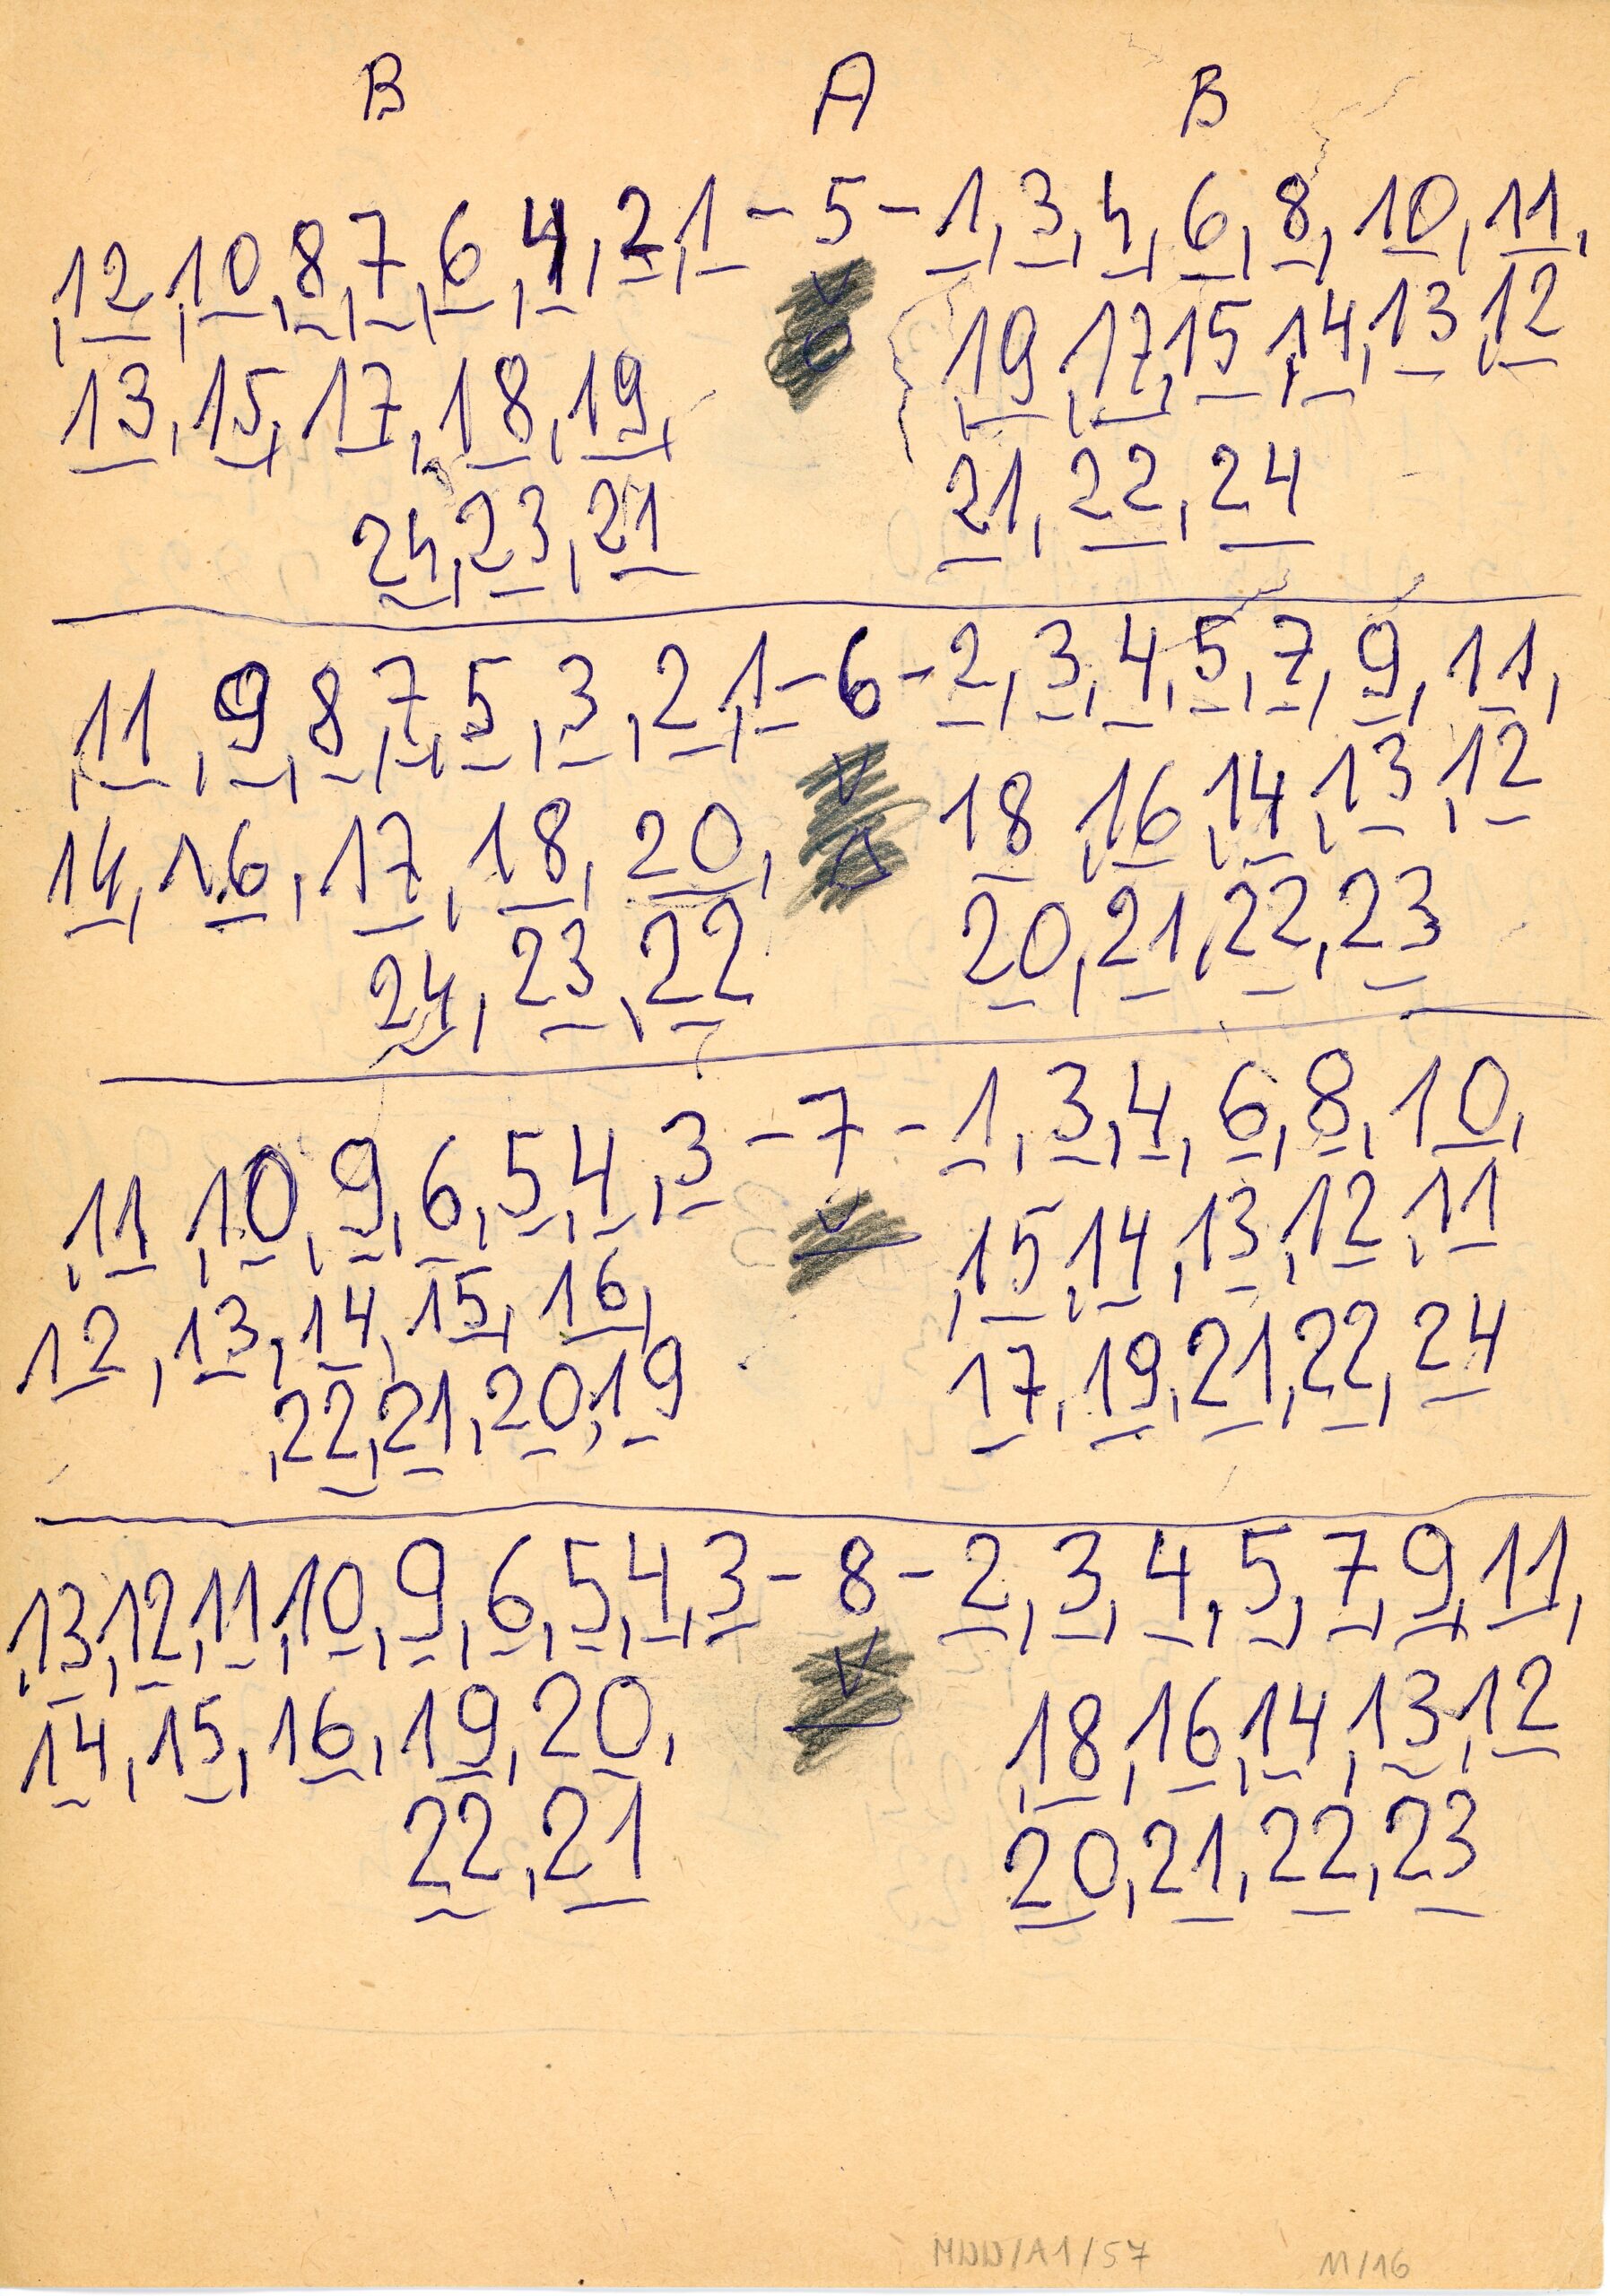 B A B
,12,10,8,7,6,4,2,1 - 5 - 1,3,4,6,8,10,11,
13,15,17,18,19, 19,17,15,14,13,12
24,23,21 21,22,24
,11,9,8,7,5,3,2,1 - 6 - 2,3,4,5,7,9,11,
14,16,17,18,20, 18,16,14,13,12
24,23,22 20,21,22,23
,11,10,9,6,5,4,3 - 7 - 1,3,4,6,8,10,
12,13,14,15,16, ,15,14,13,12,11
,22,21,20,19 17,19,21,22,24
,13,12,11,10,9,6,5,4,3 - 8 - 2,3,4,5,7,9,11,
14,15,16,19,20, ,18,16,14,13,12
22,21 20,21,22,23
MDD/A1/57 11/16